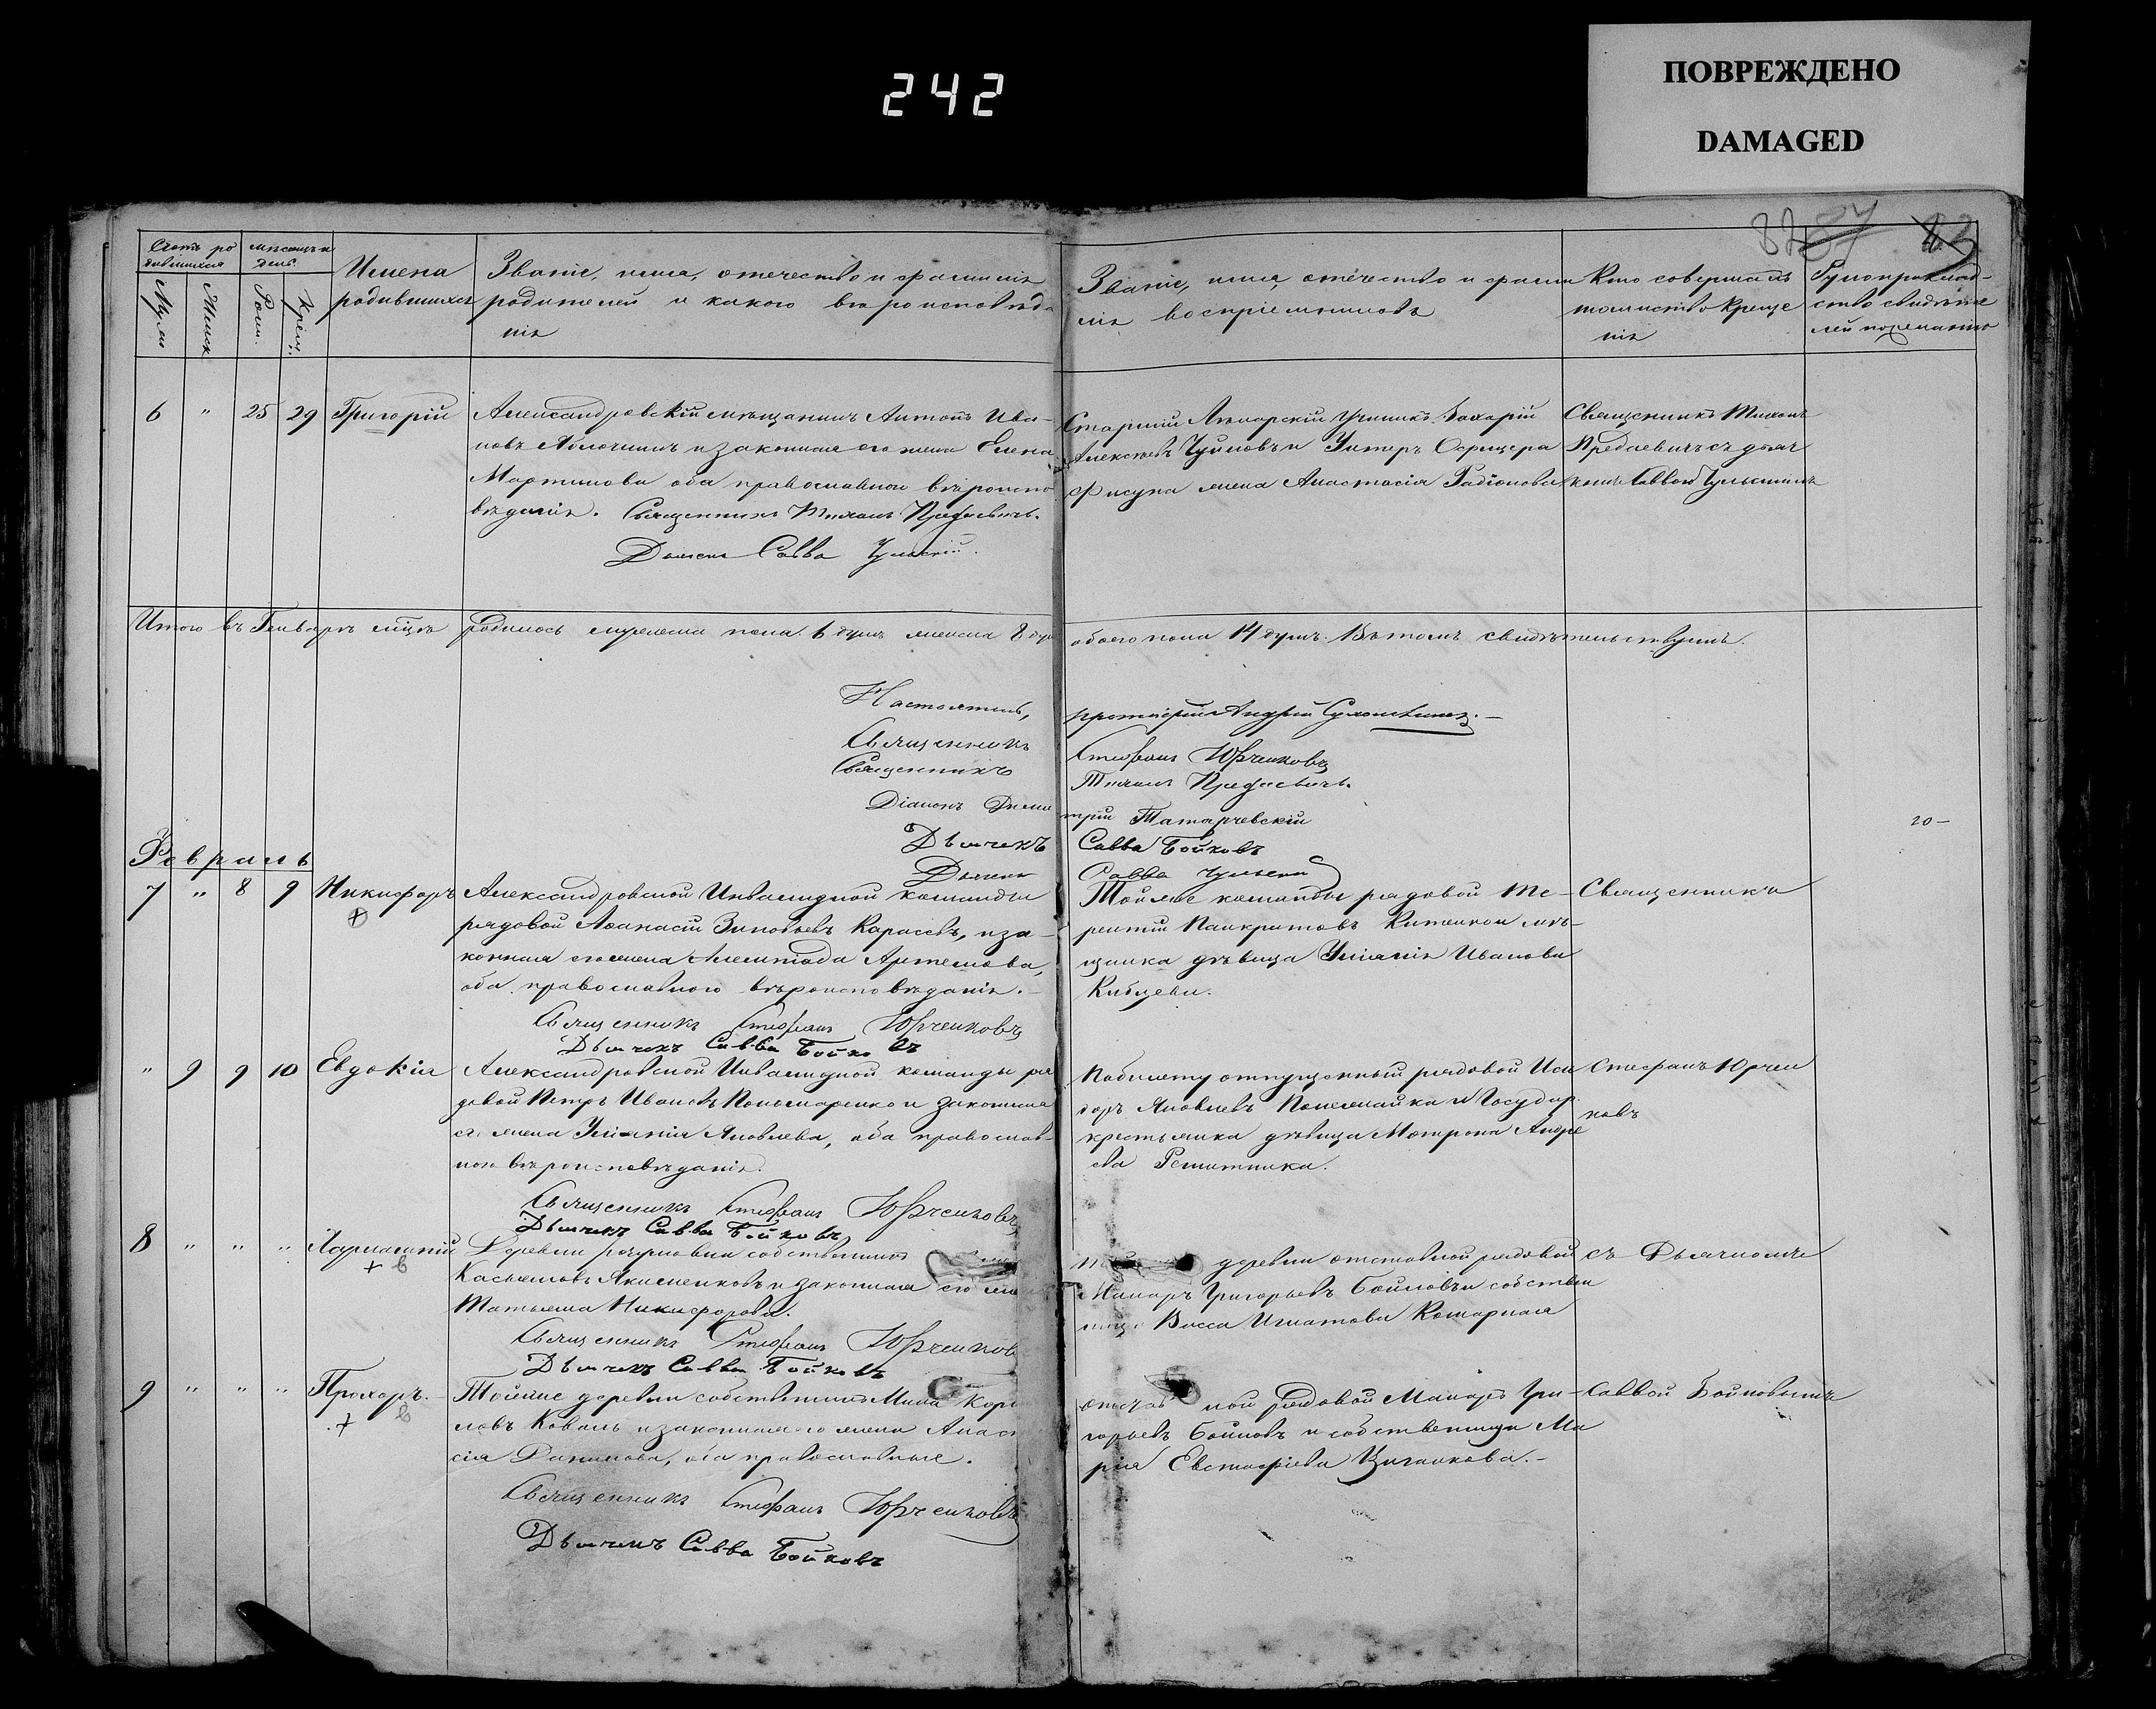 242
ПОВРЕЖДЕНО
DAMAGED
82 87
Счетъ ро
дившихся
мѣсяцъ и
день.
Муж
Женск
Рож.
Крещ.
Имена
родившихся
Званіе, имя, отечество и фамилія
родителей и какого вѣроисповѣда
нія
Званіе, имя, отечество и фами
лія воспріемниковъ
Кто совершалъ
таинство креще
нія
Рукоприклад-
ство свидѣте
лей по желанію
6 " 25 29 Григорій
Александровскій мѣщанинъ Антонъ Ива-
новъ и законная его жена Елена
Мартинова оба православнаго вѣроиспо
вѣданія. Священникъ Тихонъ
Дьячекъ Савва
Старшій Лекарскій Ученикъ Захарій
Алексѣевъ Чуйковъ и Унтеръ Офицера
жена Анастасія Радіонова
Священникъ Тихонъ
съ дьяч
комъ Саввою
Итого въ Генварѣ мцѣ родилось мужеска пола 6 душъ женска 8 душ
обоего пола 14 душъ. Въ томъ свидѣтельствуемъ.
Настоятель, протоіерей Андрей
Священникъ Стефанъ Юрченковъ
Священникъ Тихонъ
Діаконъ Дими трій Татарчевскій
Дьячекъ Савва Бойковъ
Дьячекъ Савва
20 –
Февраль
7 " 8 9 Никифоръ
Александровской Инвалидной команды
рядовой Аѳанасій Зиновьевъ Карасевъ, и за-
конная его жена Артемова,
оба православнаго вѣроисповѣданія.–
Священникъ Стефанъ Юрченковъ
Дьячекъ Савва Бойковъ
Той же команды рядовой Те-
рентій Панкратовъ мѣ-
щанка дѣвица Уліянія Иванова
Священникъ
" 9 9 10 Евдокія
Александровской Инвалидной команды ря
довой Петръ Ивановъ Пономаренко и законная
его жена Уліянія Яковлева, оба православ-
наго вѣроисповѣданія.
Священникъ Стефанъ Юрченковъ
Дьячекъ Савва Бойковъ
По билету отпущенный рядовой Иси
доръ Яковлевъ и Государ.
крестьянка дѣвица Матрона Андре
ева
Стефанъ Юрчен
ковъ
8 " " " Харлампій
Деревни собственникъ
Касьяновъ Якименковъ и законная его жена
Татьяна Никифорова.
Священникъ Стефанъ Юрченков
Дьячекъ Савва Бойковъ
деревни отставной рядовой
Макаръ Григорьевъ Бойковъ и собствен
ница Васса Игнатова
съ Дьячкомъ
9 " " " Прохоръ.
Той же деревни собственникъ Мина
ловъ Коваль и законная его жена Анаста
сія Данилова, оба православные.
Священникъ Стефанъ Юрченковъ
Дьячекъ Савва Бойковъ
отстав ной Рядовой Макаръ Гри-
горьевъ Бойковъ и собственница Ма
рія Евстафіева Циганкова.–
Саввой Бойковымъ